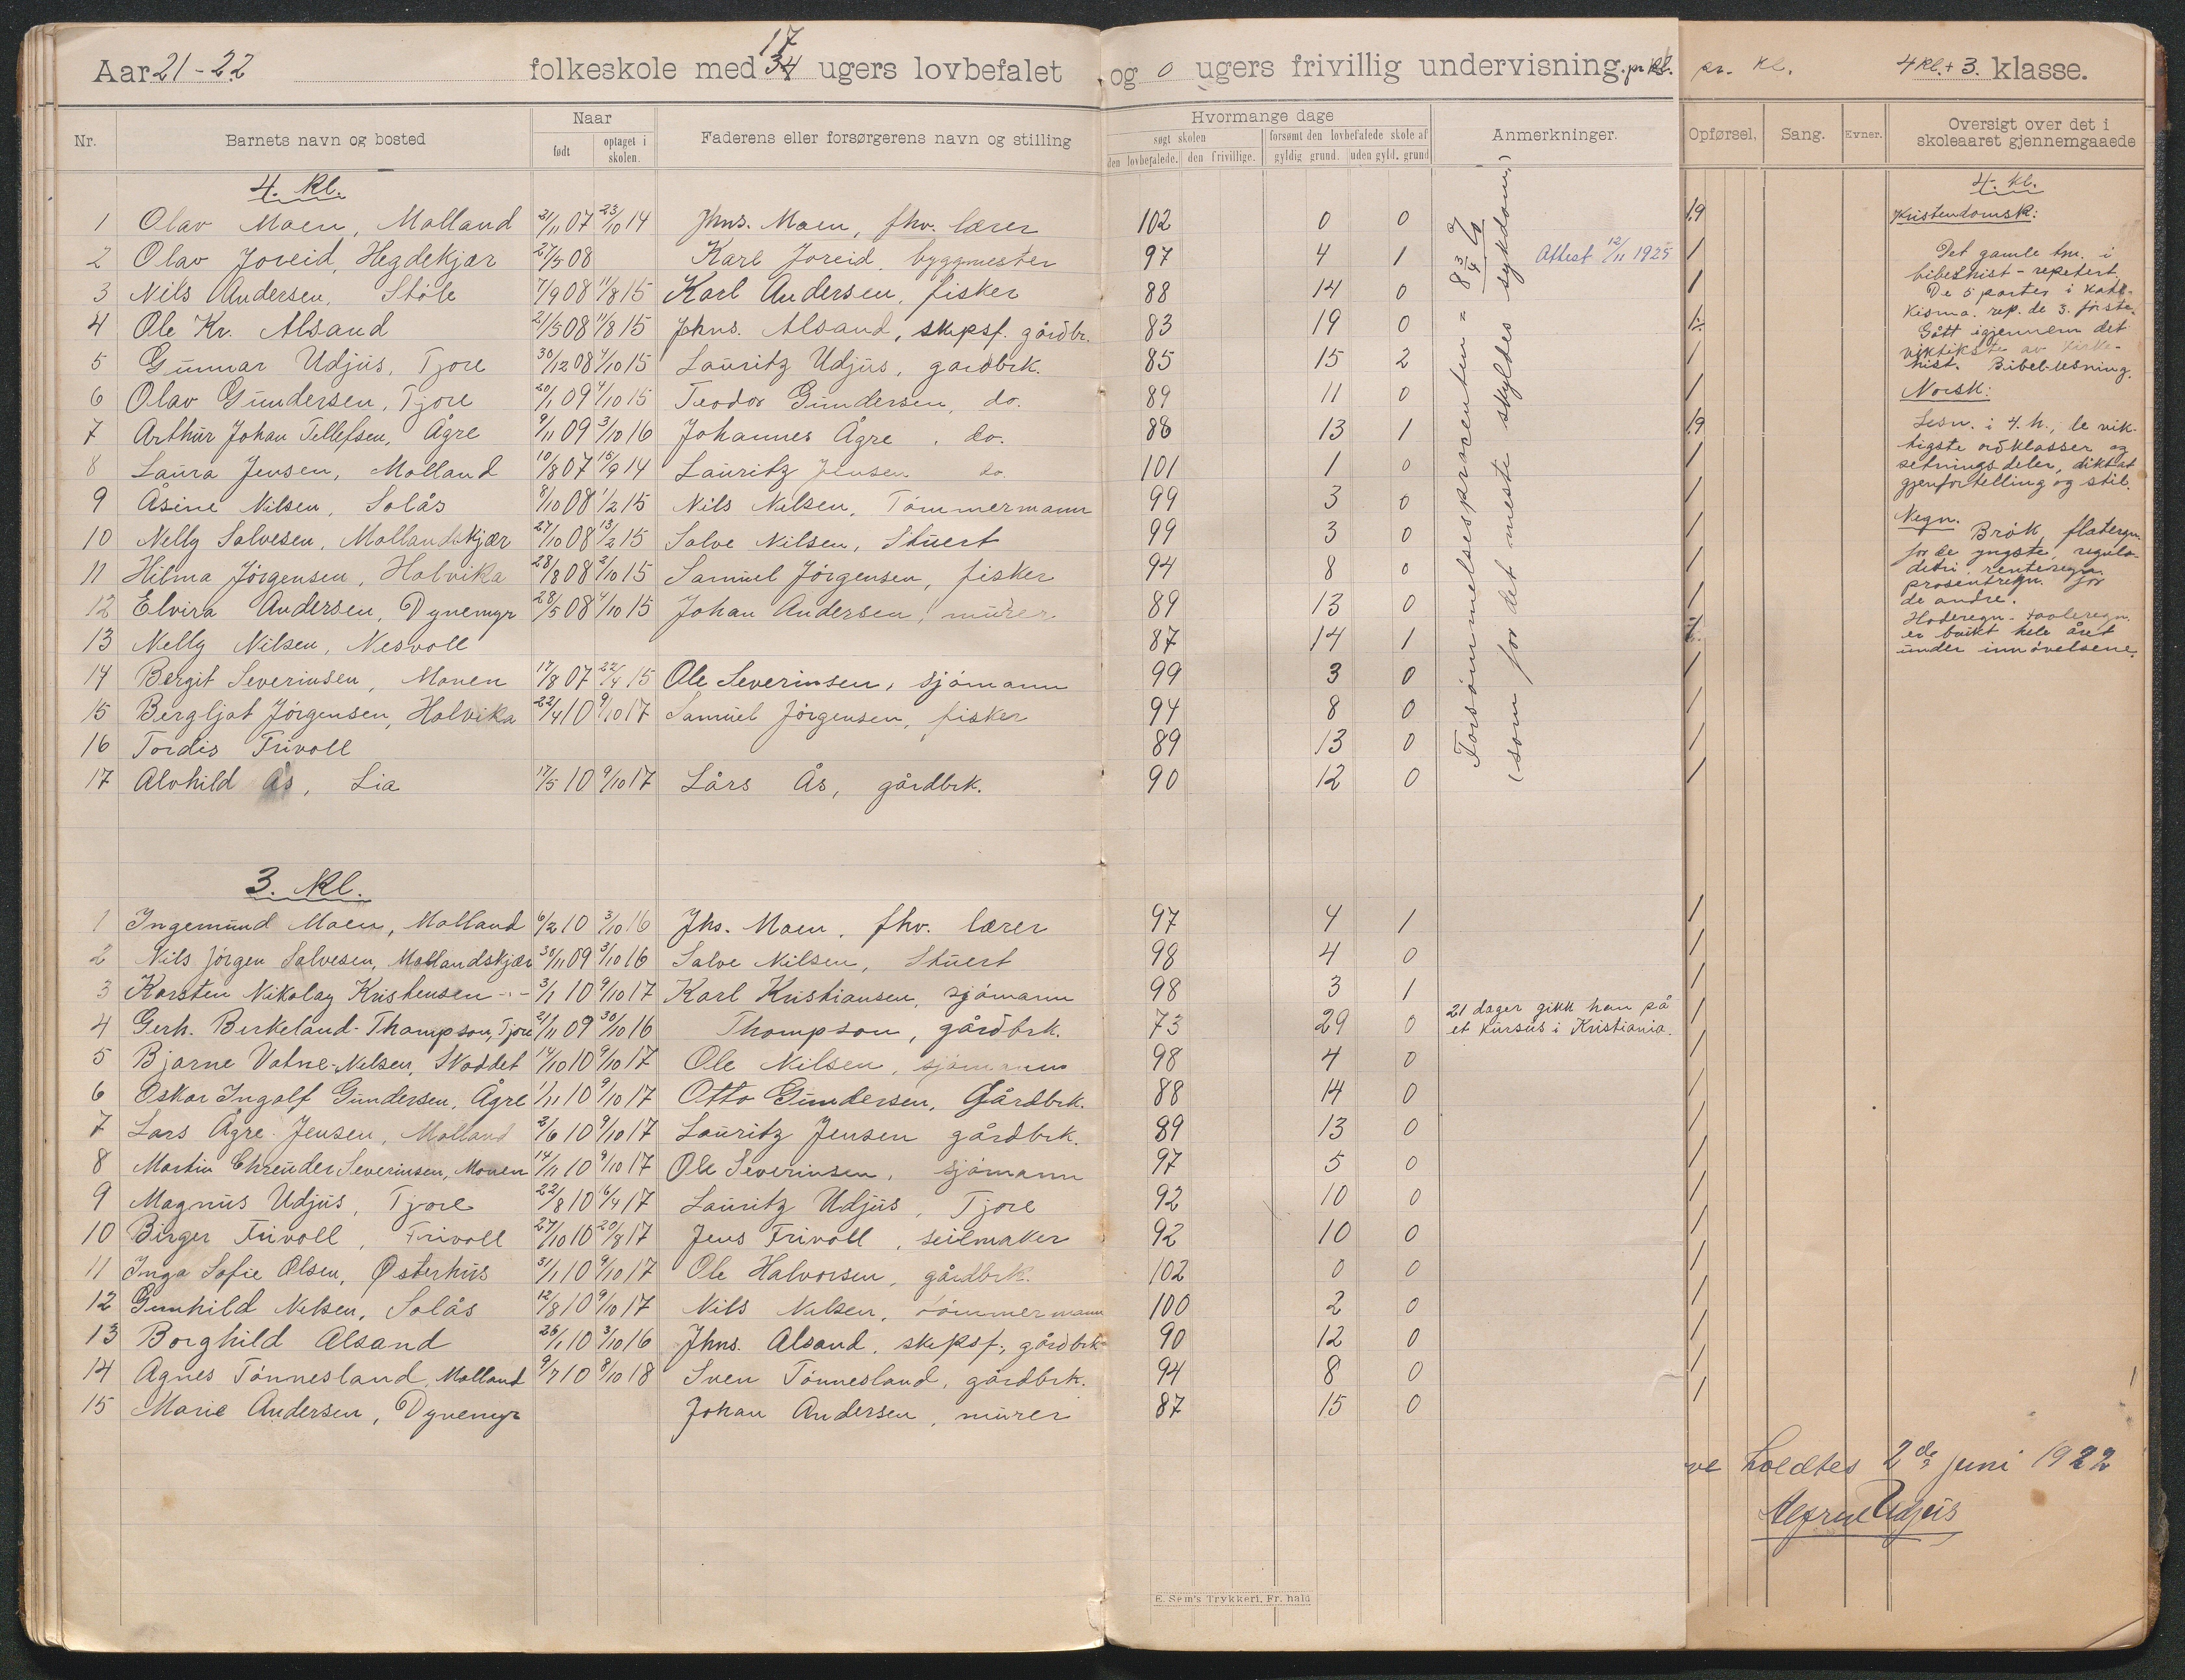 Aar 21-22 folkeskole med 17 34 ugers lovbefalet og 0 ugers frivillig undervisning. pr. kl. pr. kl. 4 kl. + 3. klasse.
Nr. Barnets navn og bosted Naar født optaget i skolen. Faderens eller forsørgerens navn og stilling Hvormange dage søgt skolen den lovbefalede. den frivillige. forsømt den lovbefalede skole af gyldig grund. uden gyld. grund Anmerkninger. Opførsel. Sang. Evner. Oversigt over det i skoleaaret gjennemgaaede
4. kl.
1 Olav Moen, Molland 2/11 07 23/10 14 Jhns. Moen, fhv. lærer 102 0 0 1,9
2 Olav Joreid, Hegdekjær 27/5 08 Karl Joreid, byggmester 97 4 1 Attest 12/11 1925 1
3 Nils Andersen, Støle 7/9 08 11/8 15 Karl Andersen, fisker 88 14 0 1
4 Ole Kr. Alsand 2/5 08 11/8 15 Johns. Alsand, skipsf. gårdbr. 83 19 0
5 Gunnar Udjus, Tjore 30/12 08 4/10 15 Lauritz Udjus, gardbrk. 85 15 2 1
6 Olav Gundersen, Tjore 20/1 09 4/10 15 Teodor Gundersen, do. 89 11 0
7 Arthur Johan Tellefsen, Ågre 9/11 09 3/10 16 Johannes Ågre, do. 88 13 1 1,9
8 Laura Jensen, Molland 10/8 07 15/9 14 Lauritz Jensen do. 101 1 0 1
9 Åsine Nilsen, Solås 8/10 08 1/2 15 Nils Nilsen, Tømmermann 99 3 0 1
10 Nelly Salvesen, Mollandskjær 27/10 08 13/2 15 Salve Nilsen, Stuert 99 3 0 1
11 Hilma Jörgensen, Holvika 28/8 08 2/10 15 Samuel Jörgensen, fisker 94 8 0 1
12 Elvira Andersen, Dynemyr 28/5 08 4/10 15 Johan Andersen, murer 89 13 0 1
13 Nelly Nilsen, Nesvoll 87 14 1
14 Bergit Severinsen, Monen 17/8 07 22/4 15 Ole Severinsen, sjömann 99 3 0 1
15 Bergljot Jörgensen, Holvika 22/4 10 9/10 17 Samuel Jörgensen, fisker 94 8 0 1
16 Tordis Frivoll 89 13 0 1
17 Alvhild Ås, Lia 17/5 10 9/10 17 Lårs Ås, gårdbrk. 90 12 0 1
Forsömmelsesprocenten = 8 3/4 %
(som for det meste skyldes sykdom.)
4. kl.
Kristendomsk:
Det gamle tm. i
bibelhist - repetert.
De 5 parter i kate-
kisma. rep. de 3. förste.
Gått igjennem det
viktikste av kirke-
hist. Bibel-lesning.
Norsk:
Lesn. i 4. h., de vik-
tigste ordklasser og
setningsdeler, diktat
gjenfortelling og stil.
Regn. Brök, flateregn.
for de yngste, regula-
detri, renteregn.
prosentregn. for
de andre.
Hoderegn - tavleregn.
er brukt hele året
under innövelsene.
3. kl.
1 Ingemund Moen, Molland 6/2 10 3/10 16 Jhs. Moen, fhv. lærer 97 4 1 1
2 Nils Jörgen Salvesen, Mollandskjær 30/11 09 3/10 16 Salve Nilsen, Stuert 98 4 0 1
3 Karsten Nikolay Kristensen -"- 3/1 10 9/10 17 Karl Kristiansen, sjömann 98 3 1 1
4 Gerh. Berkeland-Thompson, Tjore 2/11 09 30/10 16 Thompson, gårdbrk. 73 29 0 21 dager gikk han på et kursus i Kristiania. 1
5 Bjarne Vatne-Nilsen, Skoddet 14/10 10 9/10 17 Ole Nilsen, sjömann 98 4 0 1
6 Oskar Ingolf Gundersen, Ågre 1/11 10 9/10 17 Otto Gundersen, Gårdbrk. 88 14 0 1
7 Lars Ågre Jensen, Molland 2/6 10 9/10 17 Lauritz Jensen gårdbrk. 89 13 0 1
8 Martin Chreuder Severinsen, Monen 14/1 10 9/10 17 Ole Severinsen, sjömann 97 5 0 1
9 Magnus Udjus, Tjore 22/8 10 6/4 17 Lauritz Udjus, Tjore 92 10 0 1
10 Birger Frivoll, Frivoll 27/10 10 20/8 17 Jens Frivoll, seilmaker 92 10 0 1
11 Inga Sofie Olsen, Østerhus 31/1 10 9/10 17 Ole Halvorsen, gårdbrk. 102 0 0 1
12 Gunhild Nilsen, Solås 12/8 10 9/10 17 Nils Nilsen, tömmermann 100 2 0 1
13 Borghild Alsand 26/1 10 3/10 16 Jhns. Alsand, skipsf., gårdbrk 90 12 0 1
14 Agnes Tönnesland, Molland 9/7 10 8/10 18 Sven Tönnesland, gårdbrk. 94 8 0 1
15 Marie Andersen, Dynemyr Johan Andersen, murer 87 15 0 1
ve holdtes 2 de juni 1922
Alfred Udjus
E. Sem's Trykkeri, Fr. hald